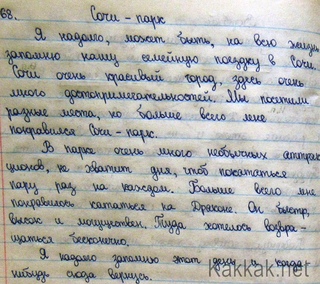 68. Сочи - парк
Я надолго, может быть, на всю жизнь
запомню нашу семейную поездку в Сочи.
Сочи очень красивый город, здесь очень
много достопримечательностей. Мы посетили
разные места, но больше всего мне
понравился Сочи - парк.
В парке очень много необычных аттрак
ционов, не хватит дня, чтоб покататься
пару раз на каждом. Больше всего мне
понравилось кататься на Драконе. Он быстр,
высок и могуществен. Туда хотелось возвра-
щаться бесконечно.
Я надолго запомню этот день и когда-
нибудь сюда вернусь.
kakkak.net